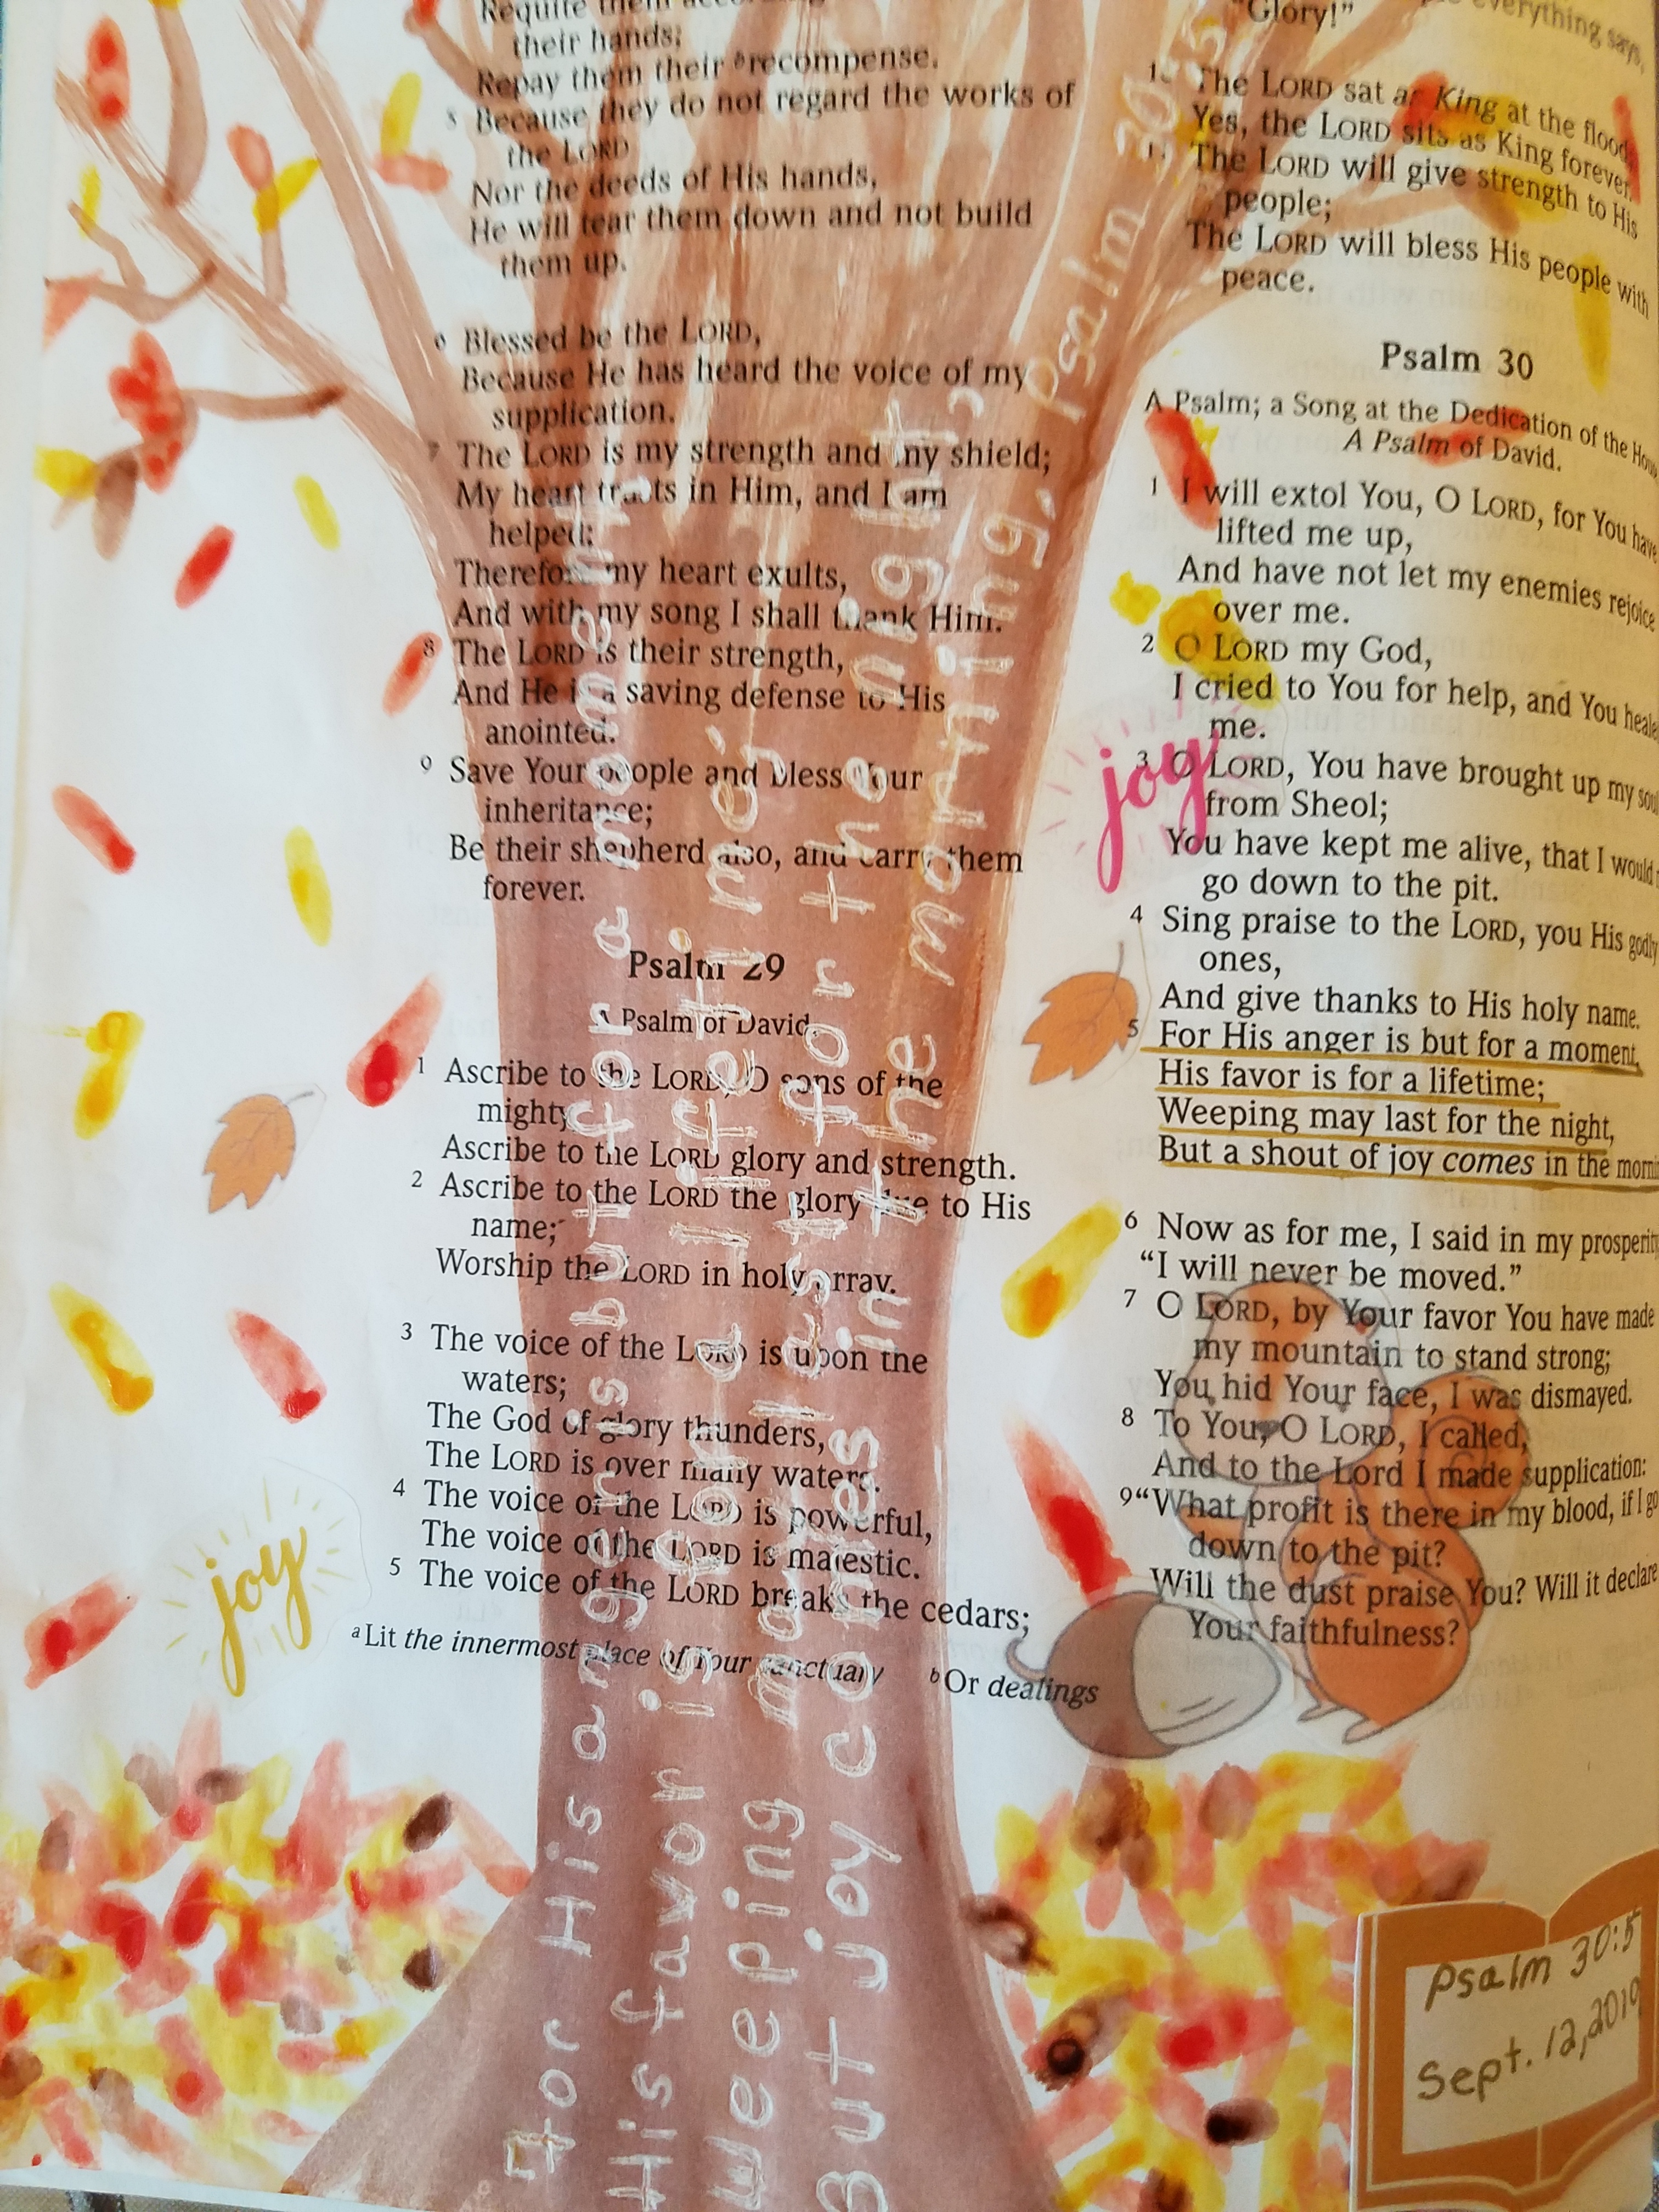 Requite them
their hands;
Repay them their recompense.
5 Because they do not regard the works of
the LORD
Nor the deeds of His hands,
He will tear them down and not build
them up.
6 Blessed be the LORD,
Because He has heard the voice of my
supplication.
7 The LORD is my strength and my shield;
My heart trusts in Him, and I am
helped;
Therefore my heart exults,
And with my song I shall thank Him.
8 The LORD is their strength,
And He is a saving defense to His
anointed.
9 Save Your people and bless Your
inheritance;
Be their shepherd also, and carry them
forever.
Psalm 29
A Psalm of David.
1 Ascribe to the LORD, O sons of the
mighty
Ascribe to the LORD glory and strength.
2 Ascribe to the LORD the glory due to His
name;
Worship the LORD in holy array.
3 The voice of the LORD is upon the
waters;
The God of glory thunders,
The LORD is over many waters.
4 The voice of the LORD is powerful,
The voice of the LORD is majestic.
5 The voice of the LORD breaks the cedars;
a Lit the innermost place of Your sanctuary b Or dealings
joy
For His anger is but for a moment,
His favor is for a lifetime;
Weeping may last for the night,
But joy comes in the morning.
Psalm 30:5
everything says,
"Glory!"
The LORD sat as King at the flood
Yes, the LORD sits as King forever.
11 The LORD will give strength to His
people;
The LORD will bless His people with
peace.
Psalm 30
A Psalm; a Song at the Dedication of the
A Psalm of David.
1 I will extol You, O LORD, for You have
lifted me up,
And have not let my enemies rejoice
over me.
2 O LORD my God,
I cried to You for help, and You
me.
3 O LORD, You have brought up my
from Sheol;
You have kept me alive, that I would
go down to the pit.
4 Sing praise to the LORD, you His godly
ones,
And give thanks to His holy name.
5 For His anger is but for a moment,
His favor is for a lifetime;
Weeping may last for the night,
But a shout of joy comes in the
6 Now as for me, I said in my
"I will never be moved."
7 O LORD, by Your favor You have made
my mountain to stand strong;
You hid Your face, I was dismayed.
8 To You, O LORD, I called,
And to the Lord I made supplication:
9 "What profit is there in my blood, if I
down to the pit?
Will the dust praise You? Will it declare
Your faithfulness?
joy
Psalm 30:5
Sept. 12, 2019